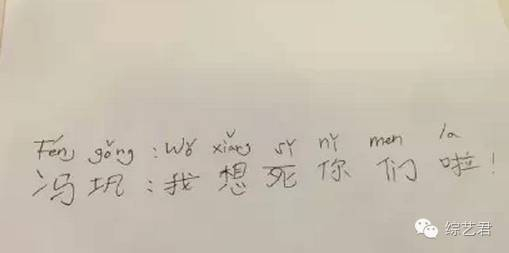 Féng gǒng : Wǒ xiǎng sǐ nǐ men la
冯巩:我想死你们啦!
综艺君